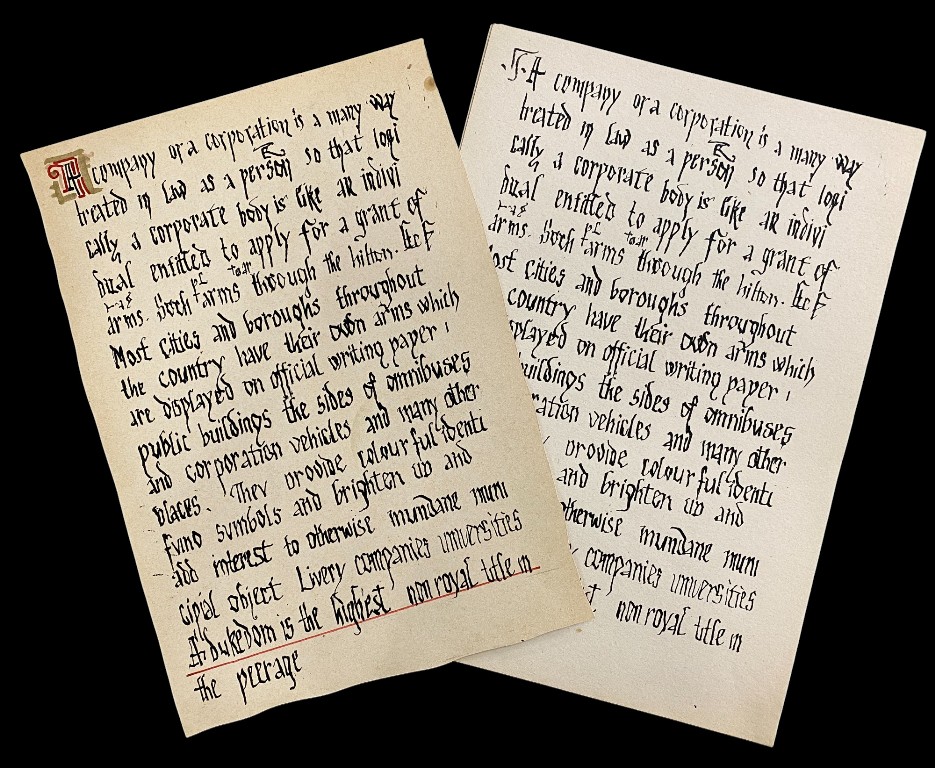 A company or a corporation is a many way
treated in law as a person so that logi
cally a corporate body is like an indivi
dual entitled to apply for a grant of
arms. Such arms through the hilton. &c F
Most cities and boroughs throughout
the country have their own arms which
are displayed on official writing paper
public buildings the sides of omnibuses
and corporation vehicles and many other
places. They provide colourful identi
fying symbols and brighten up and
add interest to otherwise mundane muni
cipal object Livery companies universities
A dukedom is the highest non royal title in
the peerage
A company or a corporation is a many way
treated in law as a person so that logi
cally a corporate body is like an indivi
dual entitled to apply for a grant of
arms. Such arms through the hilton. &c F
ost cities and boroughs throughout
country have their own arms which
splayed on official writing paper
uildings the sides of omnibuses
ration vehicles and many other
provide colourful identi
and brighten up and
therwise mundane muni
companies universities
t non royal title in